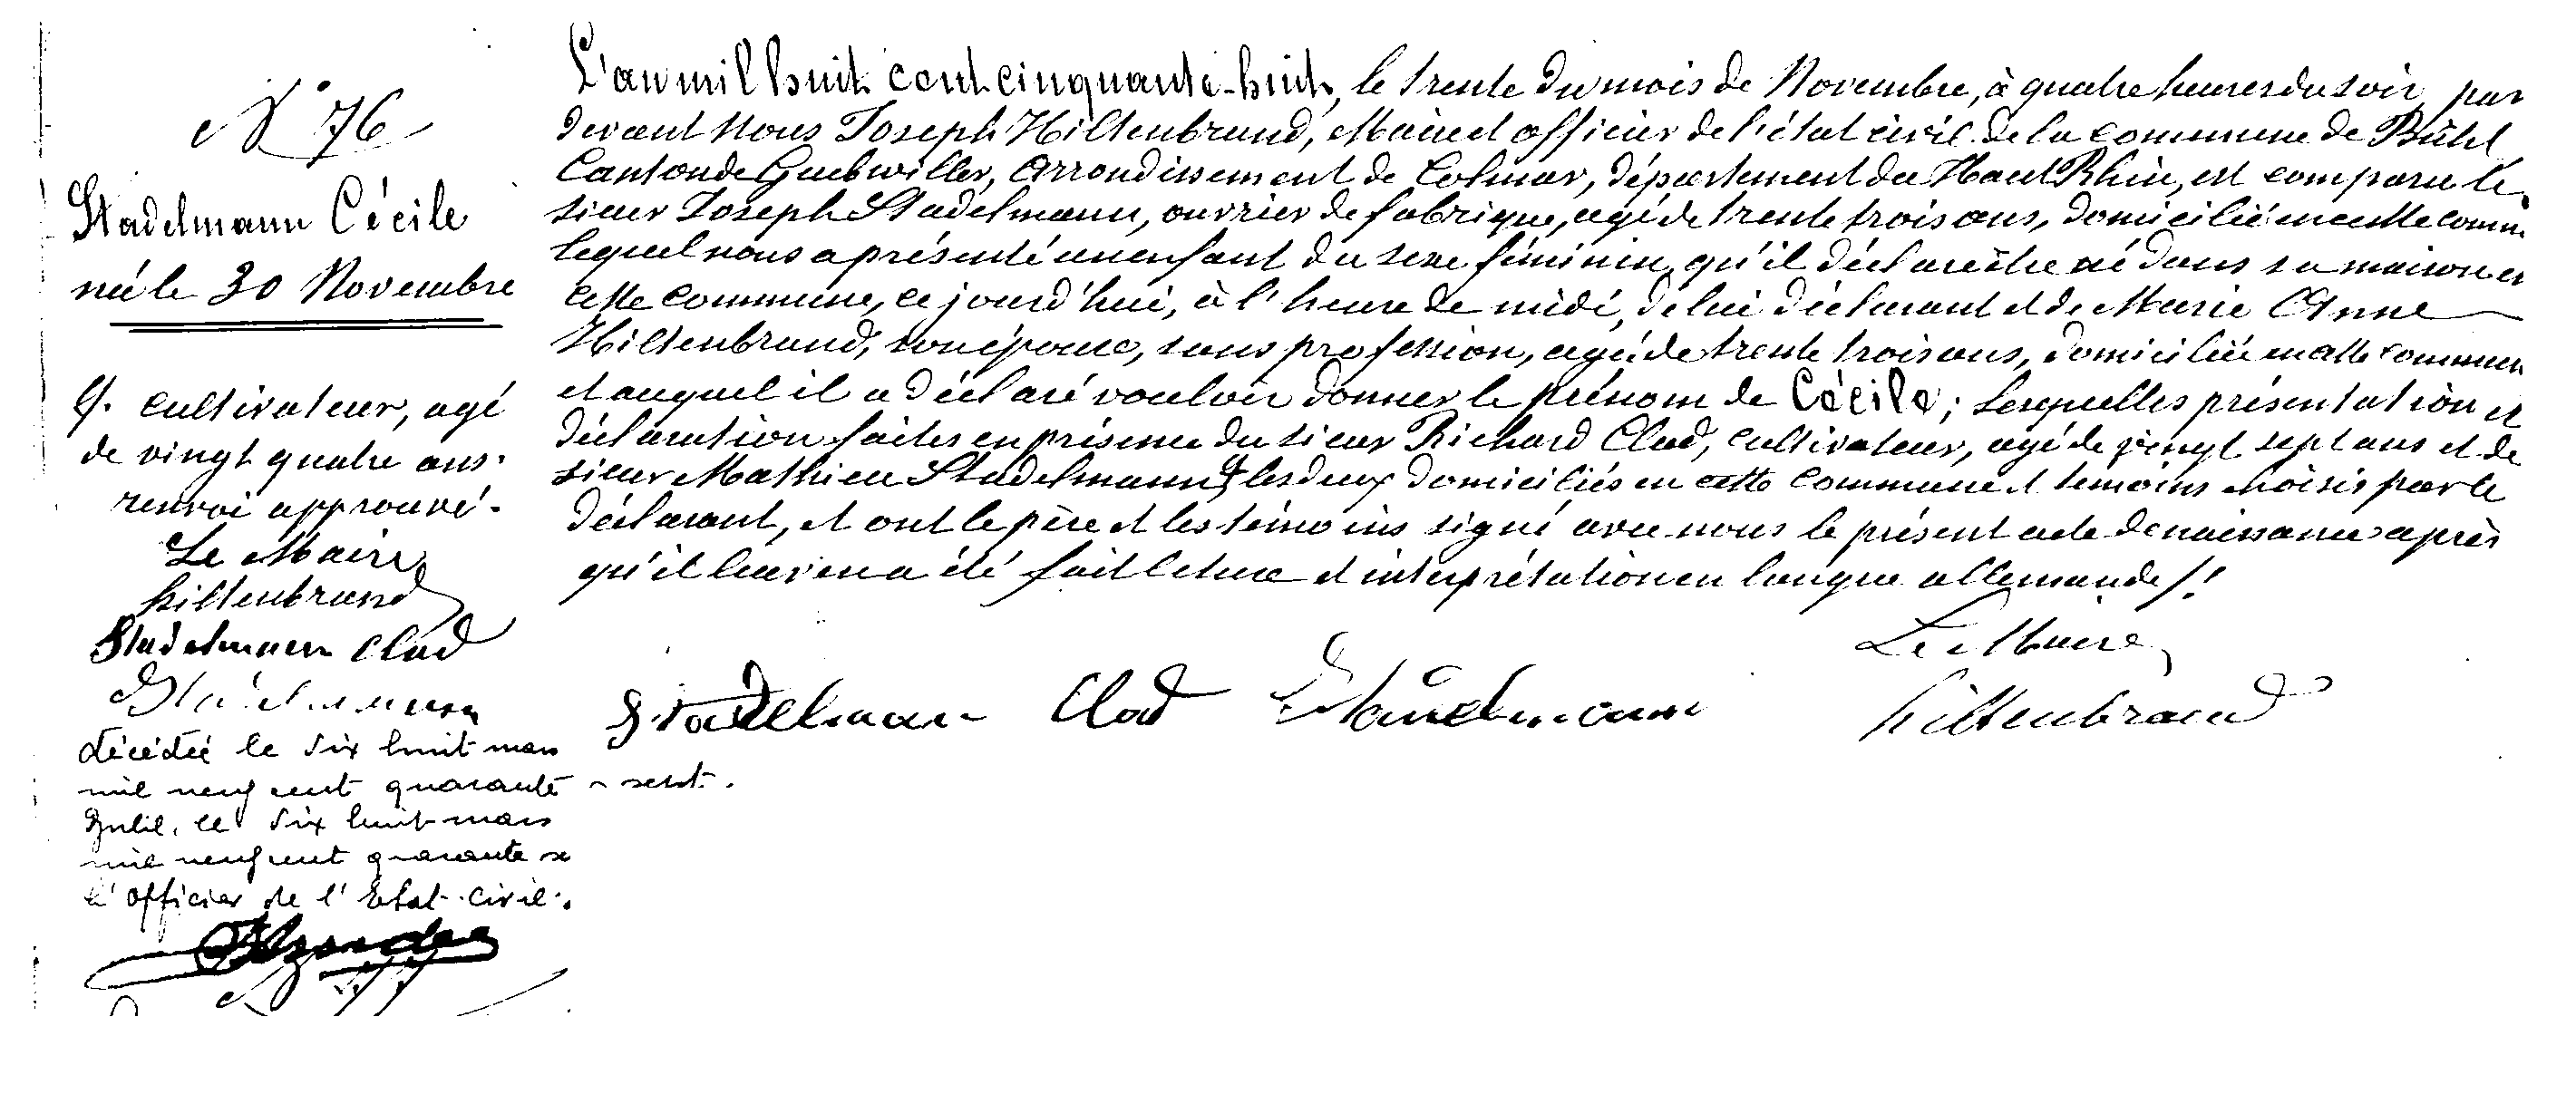 N° 76
Stadelmann Cécile
née le 30 Novembre
cultivateur, agé
de vingt quatre ans.
renvoi approuvé.
Le Maire
hiltenbrand
Stadelmann Clad
Stadelmann
décédée le dix huit mars
mil neuf cent quarante-sept.
Buhl, le dix huit mars
mil neuf cent quarante se
L'officier de l'Etat-civil.
L'an mil huit cent cinquante-huit, le trente du mois de Novembre, à quatre heures du soir, par
devant Nous Joseph Hiltenbrand, Maire et officier de l'état civil de la commune de Bühl
Canton de Guebwiller, Arrondissement de Colmar, département du Haut Rhin, est comparu le
sieur Joseph Stadelmann, ouvrier de fabrique, agé de trente trois ans, domicilié en cette comm
lequel nous a présenté un enfant du sexe féminin, qu'il déclare être né dans sa maison en
cette commune, ce jourd'hui, à l'heure de midi, de lui déclarant et de Marie Anne
Hiltenbrand, son épouse, sans profession, agée de trente trois ans, domiciliée en cette commun
et auquel il a déclaré vouloir donner le prénom de Cécile; Lesquelles présentation et
déclaration faites en présence du sieur Richard Clad, cultivateur, agé de vingt sept ans et de
sieur Mathieu Stadelmann les deux domiciliés en cette commune et témoins choisis par le
déclarant, et ont le père et les témoins signé avec nous le présent acte de naissance après
qu'il leur en a été fait lecture et interprétation en langue allemande/!
Le Maire
Stadelman Clad Stadelmann hiltenbrand